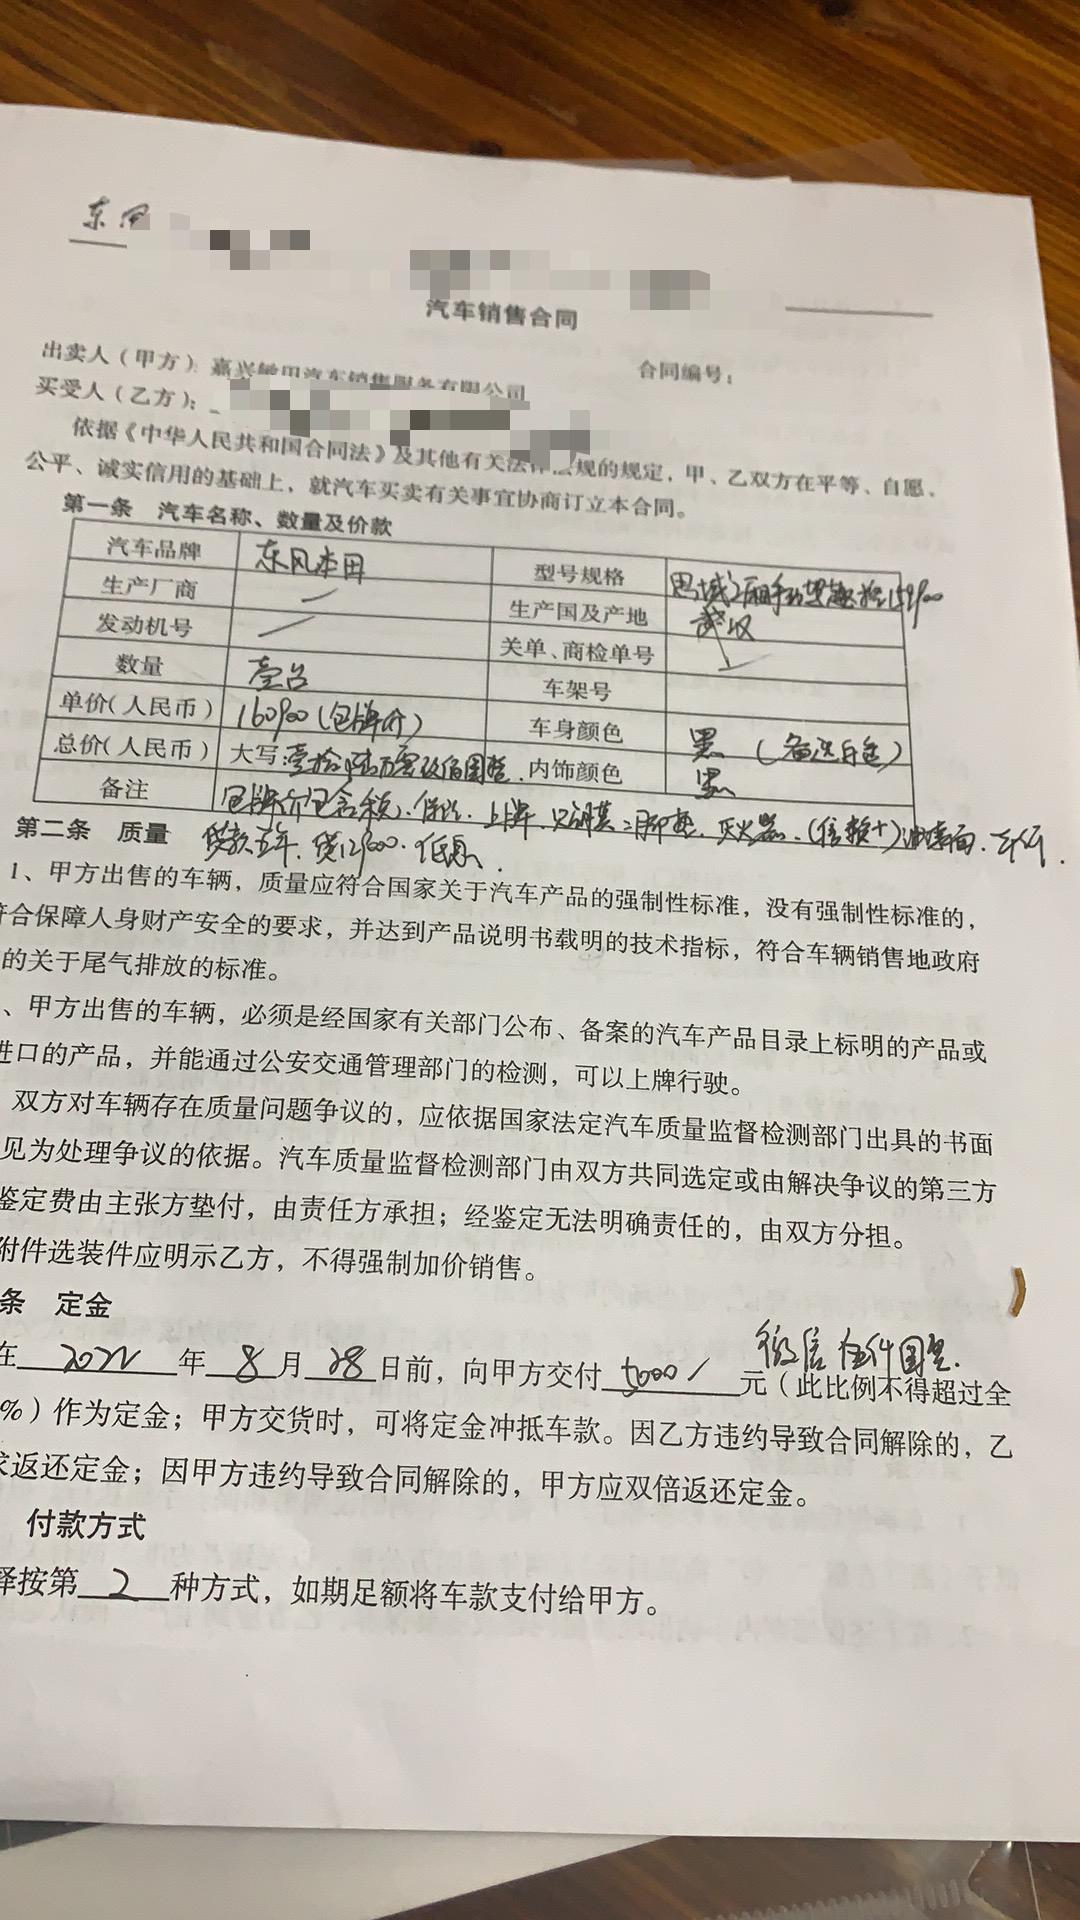 东风
汽车销售合同
出卖人（甲方）：嘉兴敏田汽车销售服务有限公司
合同编号：
买受人（乙方）：
依据《中华人民共和国合同法》及其他有关法律法规的规定，甲、乙双方在平等、自愿、
公平、诚实信用的基础上，就汽车买卖有关事宜协商订立本合同。
第一条 汽车名称、数量及价款
汽车品牌 东风本田 型号规格 159900
生产厂商 生产国及产地 武汉
发动机号 关单、商检单号
数量 壹台 车架号
单价（人民币） 160900（包牌价） 车身颜色 黑（备选白色）
总价（人民币） 大写：壹拾陆万零玖佰圆整 内饰颜色 黑
备注 包牌价包含税、保险、上牌、 脚垫、灭火器、
第二条 质量 贷款五年、
1、甲方出售的车辆，质量应符合国家关于汽车产品的强制性标准，没有强制性标准的，
符合保障人身财产安全的要求，并达到产品说明书载明的技术指标，符合车辆销售地政府
的关于尾气排放的标准。
、甲方出售的车辆，必须是经国家有关部门公布、备案的汽车产品目录上标明的产品或
进口的产品，并能通过公安交通管理部门的检测，可以上牌行驶。
双方对车辆存在质量问题争议的，应依据国家法定汽车质量监督检测部门出具的书面
见为处理争议的依据。汽车质量监督检测部门由双方共同选定或由解决争议的第三方
鉴定费由主张方垫付，由责任方承担；经鉴定无法明确责任的，由双方分担。
附件选装件应明示乙方，不得强制加价销售。
条 定金
微信 伍仟圆整.
在 2022 年 8 月 28 日前，向甲方交付 5000 元（此比例不得超过全
%）作为定金；甲方交货时，可将定金冲抵车款。因乙方违约导致合同解除的，乙
求返还定金；因甲方违约导致合同解除的，甲方应双倍返还定金。
付款方式
择按第 2 种方式，如期足额将车款支付给甲方。